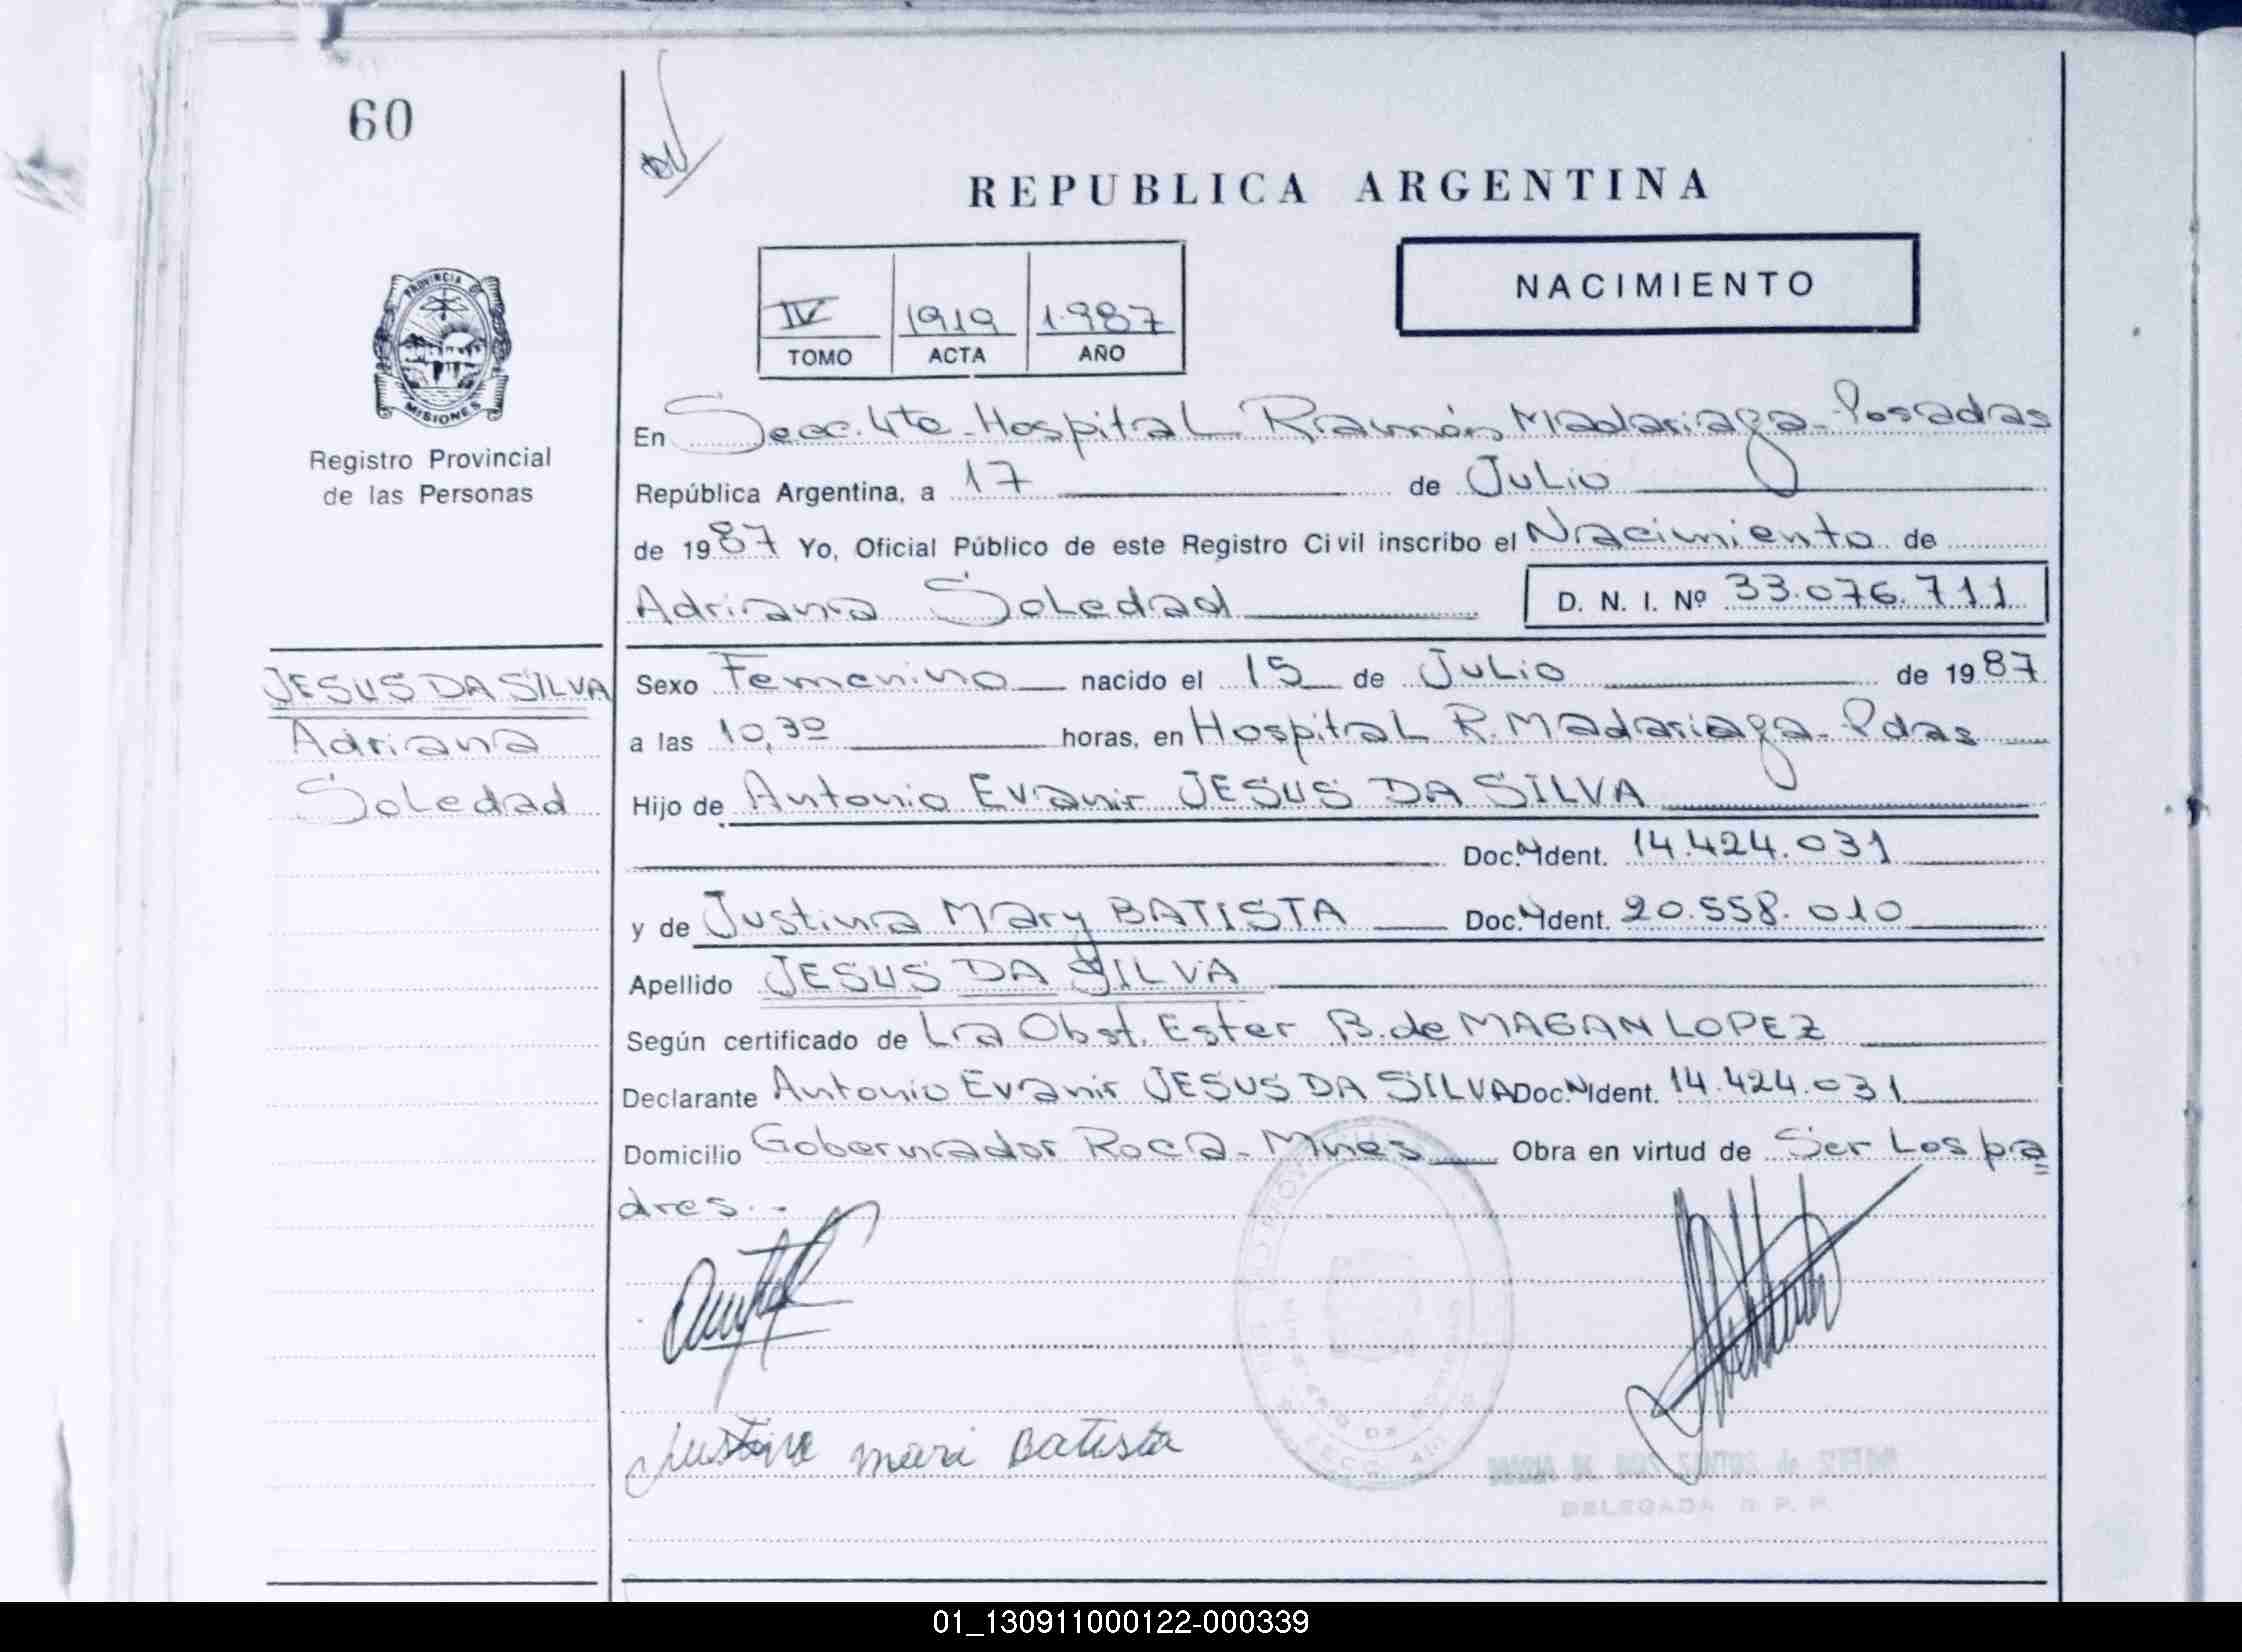 60
REPUBLICA ARGENTINA
NACIMIENTO
IV 1919 1987
TOMO ACTA AÑO
PROVINCIA D
MISIONES
Registro Provincial
de las Personas
En Secc. 4ta - Hospital Ramón Madariaga - Posadas
República Argentina, a 17 de Julio
de 1987 Yo, Oficial Público de este Registro Civil inscribo el Nacimiento de
Adriana Soledad D. N. I. Nº 33.076.711
JESUS DA SILVA
Adriana
Soledad
Sexo Femenino nacido el 15 de Julio de 1987
a las 10,30 horas, en Hospital R. Madariaga - Pdas
Hijo de Antonio Evanir JESUS DA SILVA
Doc. Ident. 14.424.031
y de Justina Mary BATISTA Doc. Ident. 20.558.010
Apellido JESUS DA SILVA
Según certificado de La Obst. Ester B. de MAGAN LOPEZ
Declarante Antonio Evanir JESUS DA SILVA Doc. Ident. 14.424.031
Domicilio Gobernador Roca - Mnes Obra en virtud de Ser Los pa
dres.-
Justina mari Batista
DELEGADA R. P. P.
01_130911000122-000339